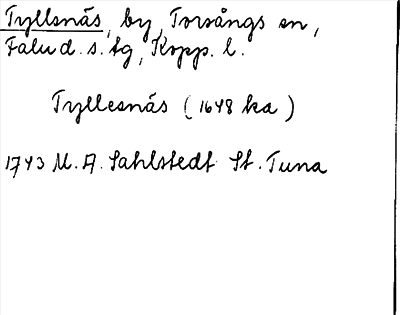 Tyllsnäs, by, Torsångs sn,
Falu d. s. tg, Kopp. l.
Tyllesnäs (1648 ka)
1743 M. A. Sahlstedt St. Tuna